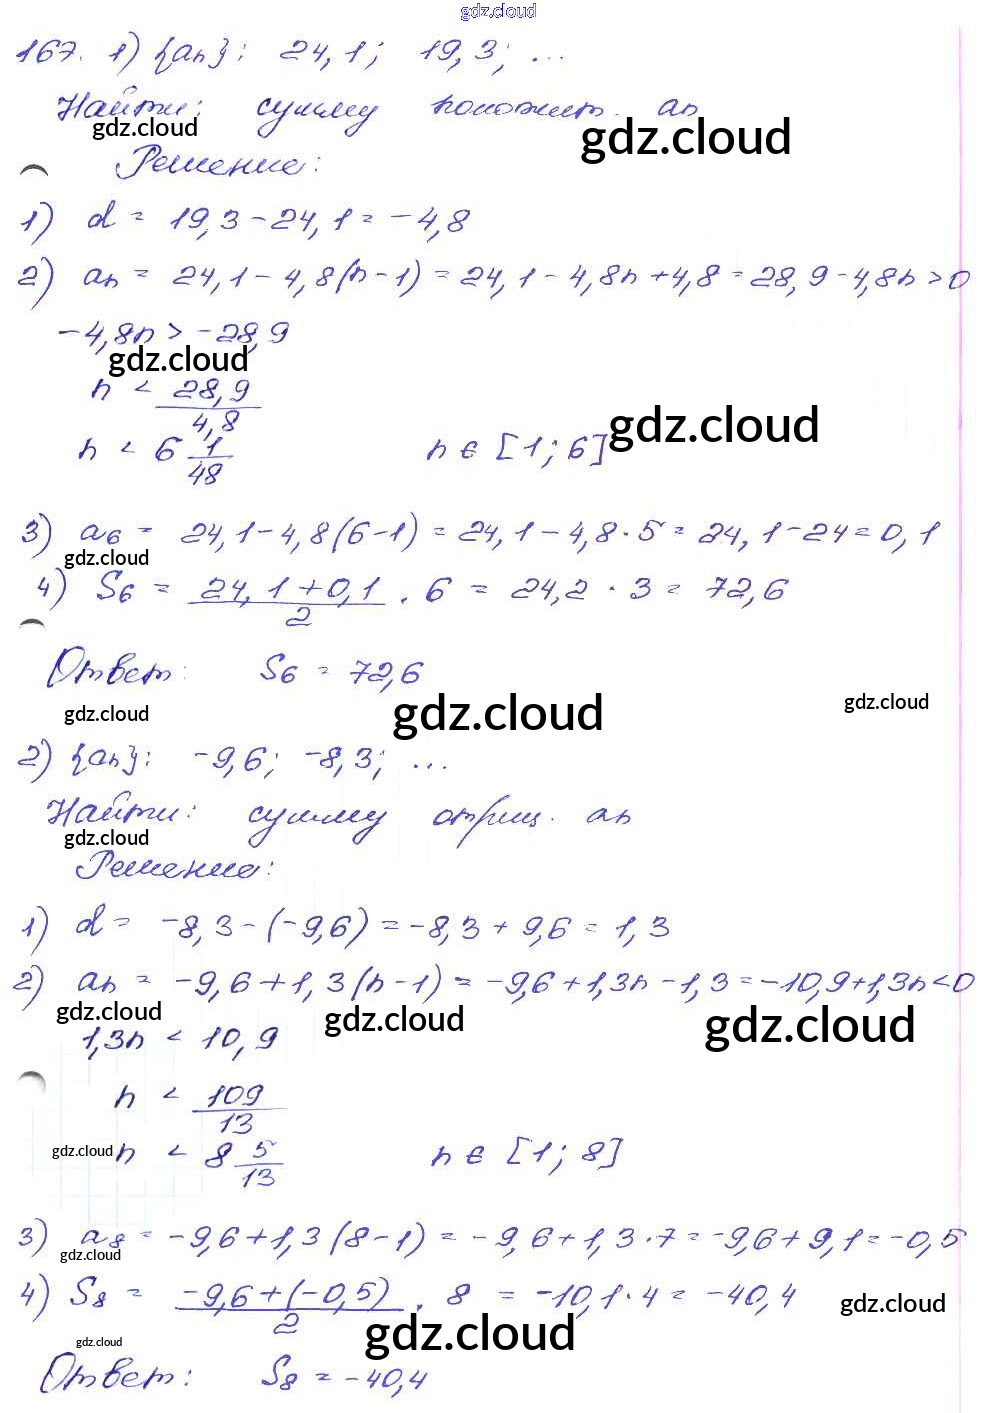 gdz.cloud
167. 1) {an}: 24,1; 19,3; ...
Найти: сумму положит. an
gdz.cloud gdz.cloud
Решение:
1) d = 19,3 - 24,1 = -4,8
2) an = 24,1 - 4,8(n-1) = 24,1 - 4,8n + 4,8 = 28,9 - 4,8n > 0
-4,8n > -28,9
gdz.cloud
n < 28,9/4,8
gdz.cloud
n < 6 1/48 n ∈ [1; 6]
3) a6 = 24,1 - 4,8(6-1) = 24,1 - 4,8 · 5 = 24,1 - 24 = 0,1
gdz.cloud
4) S6 = (24,1 + 0,1)/2 · 6 = 24,2 · 3 = 72,6
Ответ: S6 = 72,6
gdz.cloud gdz.cloud gdz.cloud
2) {an}: -9,6; -8,3; ...
Найти: сумму отриц. an
gdz.cloud
Решение:
1) d = -8,3 - (-9,6) = -8,3 + 9,6 = 1,3
2) an = -9,6 + 1,3(n-1) = -9,6 + 1,3n - 1,3 = -10,9 + 1,3n < 0
gdz.cloud gdz.cloud gdz.cloud
1,3n < 10,9
n < 109/13
gdz.cloud
n < 8 5/13 n ∈ [1; 8]
3) a8 = -9,6 + 1,3(8-1) = -9,6 + 1,3 · 7 = -9,6 + 9,1 = -0,5
gdz.cloud
4) S8 = (-9,6 + (-0,5))/2 · 8 = -10,1 · 4 = -40,4
gdz.cloud gdz.cloud gdz.cloud
Ответ: S8 = -40,4